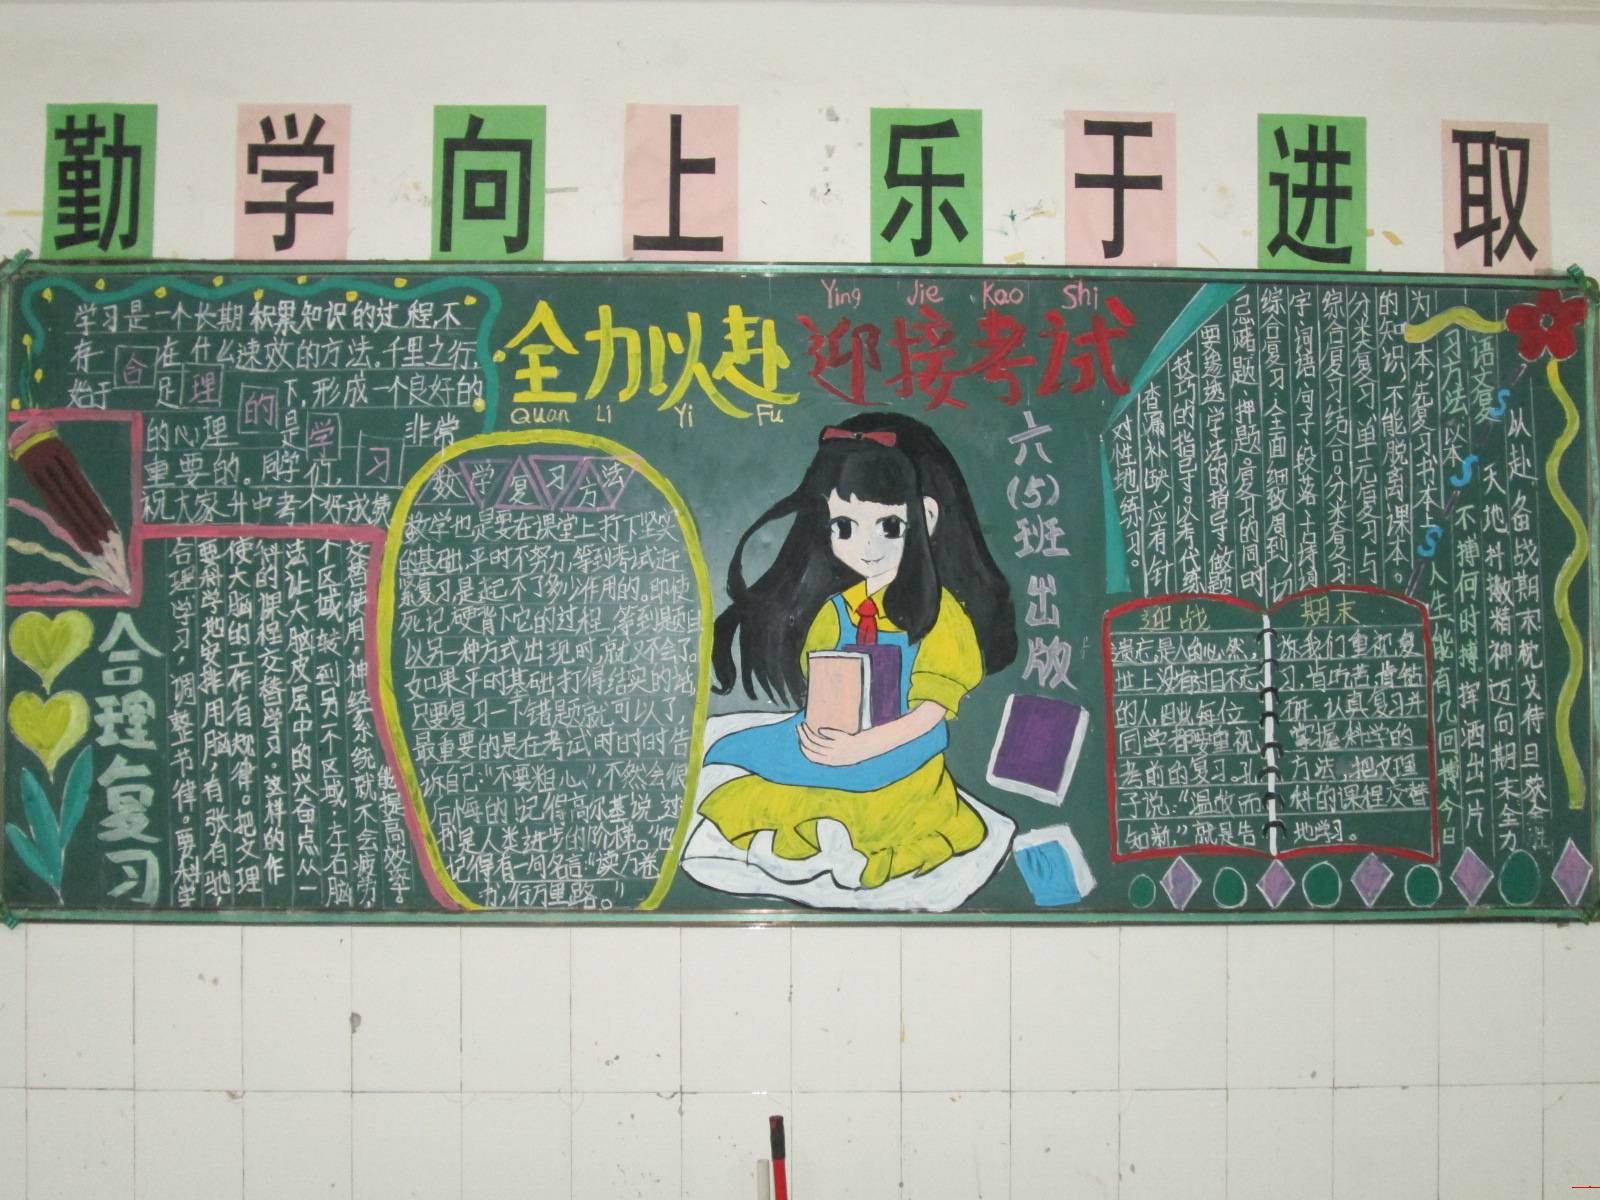 勤学向上乐于进取
Ying Jie Kao Shi
全力以赴 迎接考试
Quan Li Yi Fu
六(5)班出版
学习是一个长期积累知识的过程,不
存 在什么速效的方法。千里之行,
始于足下,形成一个良好的
的心理是 非常
重要的。同学们,
祝大家升中考个好成绩
合理的学习
合理复习
合理学习,调整节律。要科学
要科学地安排用脑,有张有弛,
使大脑的工作有规律。把文理
科的课程交替学习。这样的作
法让大脑皮层中的兴奋点从一
个区域转到另一个区域,左右脑
交替使用,神经系统就不会疲劳,
能提高效率。
数学复习方法
数学也是要在课堂上打下坚实
的基础,平时不努力,等到考试近
紧复习是起不了多少作用的。即使
死记硬背下它的过程,等到题目
以另一种方式出现时,就又不会了。
如果平的基础打得结实的话,
只要复习一个错是题就可以了,
最重要的是在考试时时时告
诉自己:“不要粗心”,不然会很
后悔的!记得高尔基说过
书是人类进步的阶梯。”也
记得有一句名言:“读万卷
书,行万里路。”
语文复
习方法:以本
为本,先复习书本上
的知识,不能脱离课本。
分类复习、单元复习与
综合复习结合。分类复习
字、词语、句子、段落、古诗词
综合复习:全面、细致、周到、切
忌赌题、押题。复习的同时
要渗透学法的指导、做题
技巧的指导。以考代练
查漏补缺,应有针
对性地练习。
从赴备战期末枕戈待旦
天地抖擞精神迈向期末全力
不搏何时搏挥洒出一片
人生能有几回搏今日
S S S
迎战 期末
遗忘是人的必然,
世上没有过目不忘
的人,因此每位
同学都要重视
考前的复习。孔
子说:“温故而
知新,”就是告
诉我们重视复
习,肯巧苦,肯钻
研,认真复习并
掌握科学的
方法,把文理
科的课程交替
地学习。